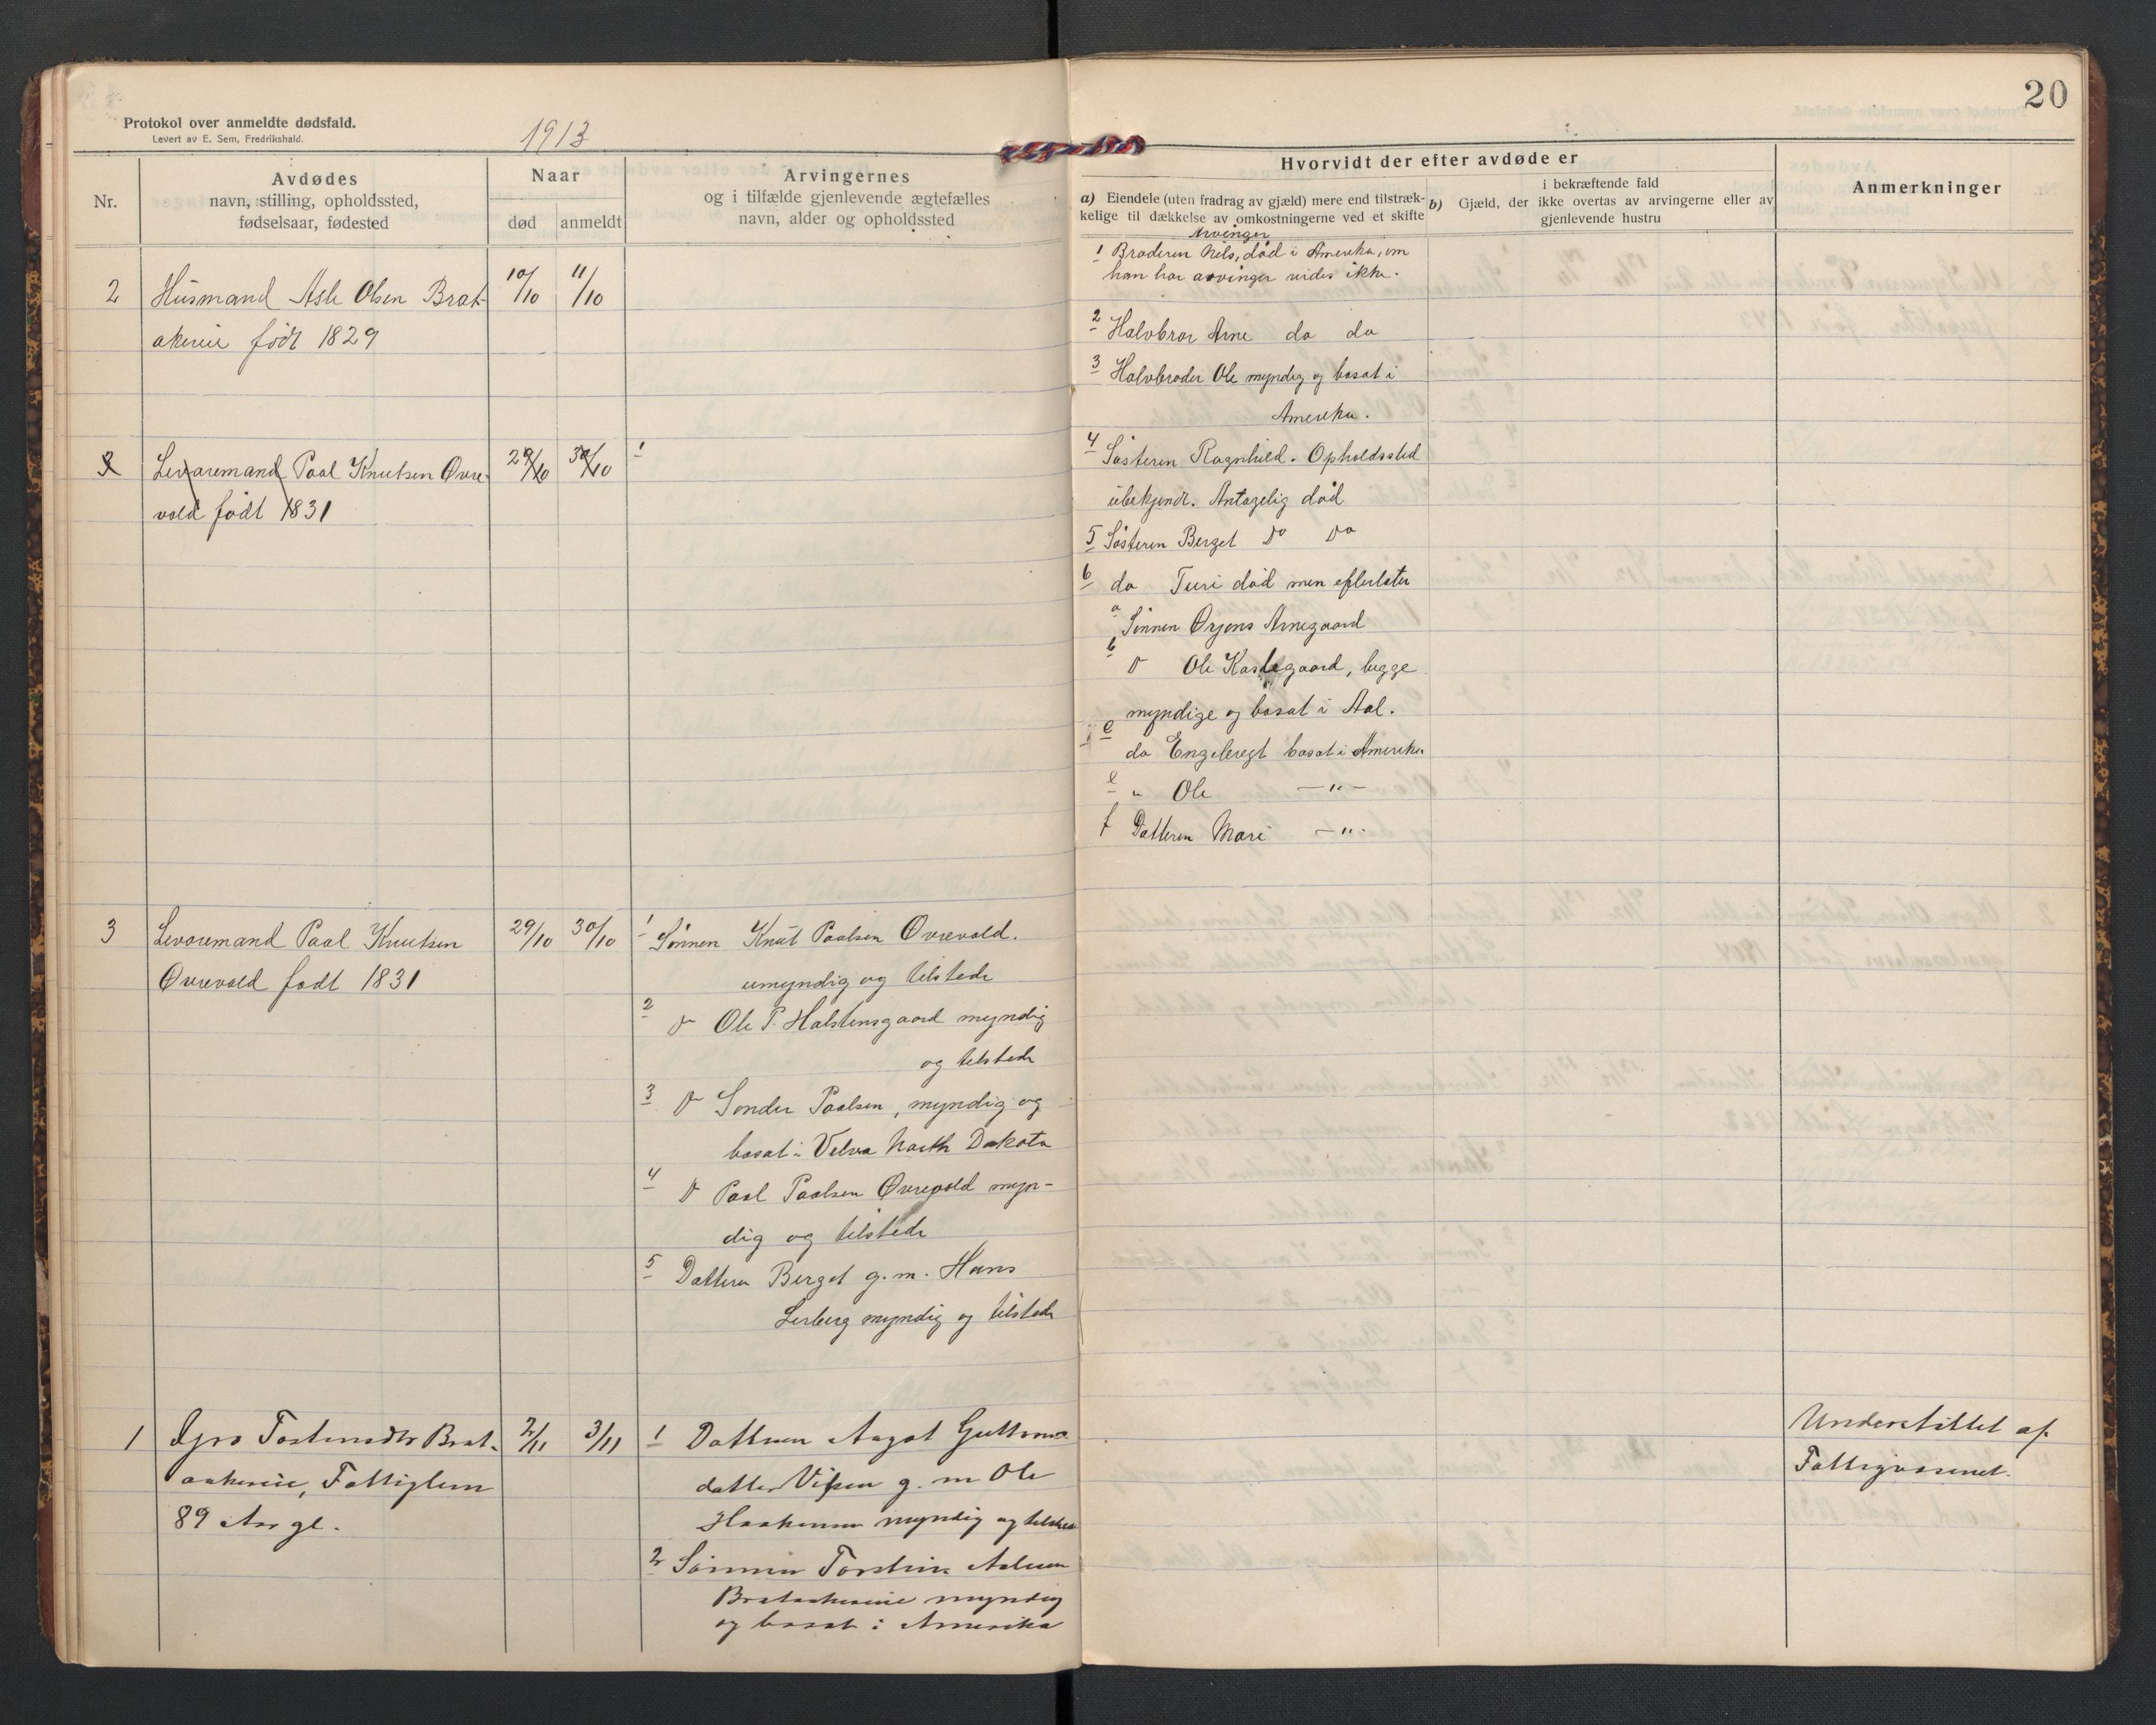 Protokol over anmeldte dødsfald.
Levert av E. Sem, Fredrikshald.
1913
Nr.
Avdødes
navn, stilling, opholdssted,
fødselsaar, fødested
Naar
død
anmeldt
Arvingernes
og i tilfælde gjenlevende ægtefælles
navn, alder og opholdssted
2
Husmand Asle Olsen Brat-
akereie født 1829
10/10
11/10
3
Levaremand Paal Knutsen Øvre-
vold født 1831
29/10
30/10
1
3
Levaremand Paal Knutsen
Øvrevold født 1831
29/10
30/10
1 Sønnen Knut Paalsen Øvrevold.
umyndig og tilstede
2 do Ole P. Halstensgaard myndig
og tilstede
3 do Sander Paalsen, myndig og
bosat i Velva North Dakota
4 do Paal Paalsen Øvrevold myn-
dig og tilstede
5 Datteren Berget g. m. Hans
Lerberg myndig og tilstede
1
Gro Tostensdtr Brat-
aakereie, Fattiglem
89 Aar gl.
2/11
3/11
1 Datteren Aagot Guttorms-
datter g. m Ole
Haakensen myndig og tilstede
2 Sønnen Torstein Aslesen
Brataakereie myndig
og bosat i Amerika
20
Hvorvidt der efter avdøde er
a) Eiendele (uten fradrag av gjæld) mere end tilstræk-
kelige til dækkelse av omkostningerne ved et skifte
i bekræftende fald
b) Gjæld, der ikke overtas av arvingerne eller av
gjenlevende hustru
Anmerkninger
Arvinger
1 Broderen Nils, død i Amerika, om
han har arvinger vides ikke.
2 Halvbror Arne do do
3 Halvbroder Ole myndig og bosat i
Amerika.
4 Søsteren Ragnhild. Opholdssted
ubekjendt. Antagelig død
5 Søsteren Berget Do Do
6 do Turi død men efterlater
a Sønnen Ørjans Arnegaard
b D Ole Kaslegaard, begge
myndige og bosat i Aal.
c do Engebregt bosat i Amerika
e " Ole - " -
f Datteren Mari - " -
Understøttet af
Fattigvæsenet.